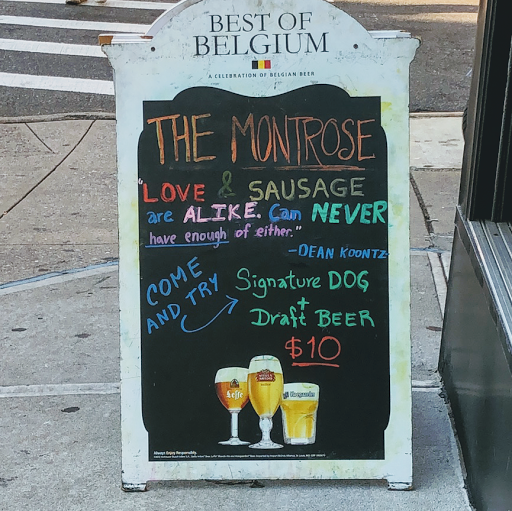 BEST OF
BELGIUM
A CELEBRATION OF BELGIAN BEER
THE MONTROSE
"LOVE & SAUSAGE
are ALIKE. Can NEVER
have enough of either."
-DEAN KOONTZ
COME
AND TRY
Signature DOG
+
Draft BEER
$10
Leffe
Hoegaarden
Always Enjoy Responsibly.